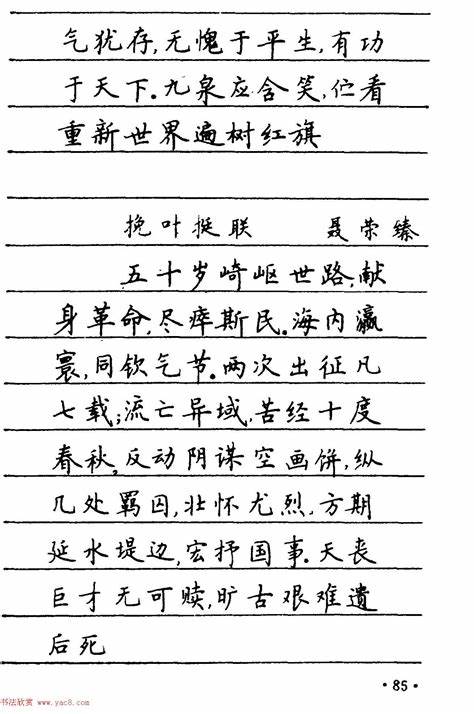 气犹存,无愧于平生,有功
于天下.九泉应含笑,伫看
重新世界遍树红旗
挽叶挺联 聂荣臻
五十岁崎岖世路,献
身革命,尽瘁斯民.海内瀛
寰,同钦气节.两次出征凡
七载;流亡异域,苦经十度
春秋,反动阴谋空画饼,纵
几处羁囚,壮怀尤烈.方期
延水堤边,宏抒国事.天丧
巨才无可赎,旷古艰难遗
后死
·85·
书法欣赏 www.yac8.com